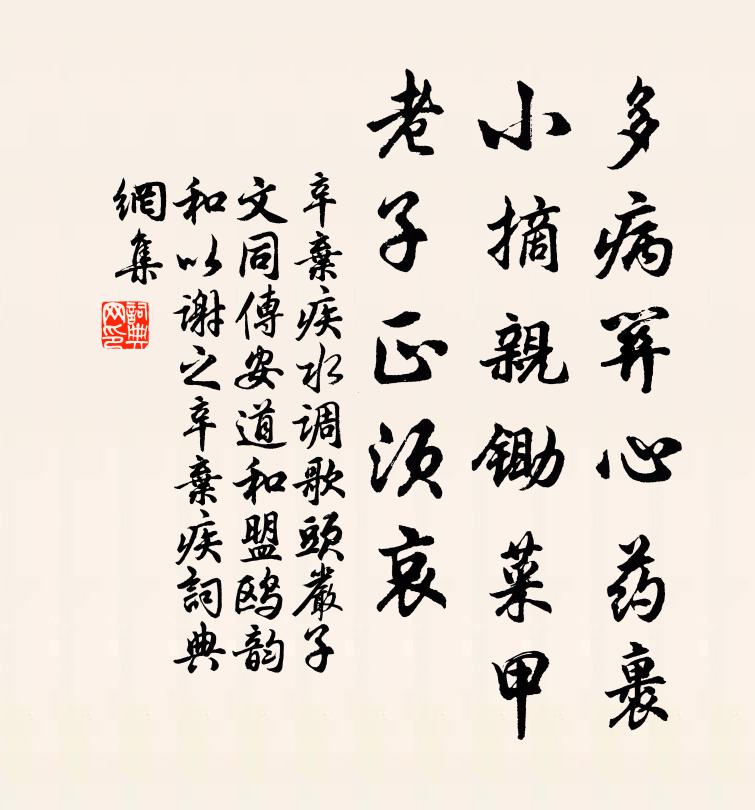 多病關心药裹
小摘親鋤菜甲
老子正須哀
辛棄疾水调歌頭嚴子
文同傅安道和盟鸥韵
和以謝之辛棄疾詞典
網集
詞典
网印